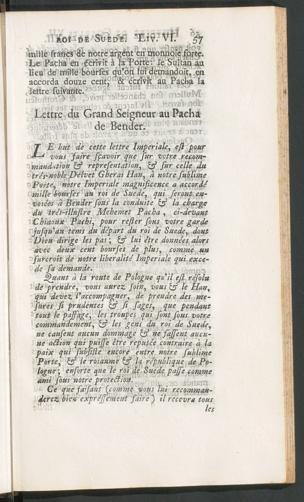 ROI DE SUEDE. LIV. VI. 57
mille francs de notre argent en monnoie forte.
Le Pacha en écrivit à la Porte: le Sultan au
lieu de mille bourses qu'on lui demandoit, en
accorda douze cent, & écrivit au Pacha la
lettre suivante.
Lettre du Grand Seigneur au Pacha
de Bender.
LE but de cette lettre Imperiale, est pour
vous faire sçavoir que sur votre recom-
mandation & representation, & sur celle du
très-noble Delvet Gherai Han, à notre sublime
Porte, notre Imperiale magnificence a accordé
mille bourses au roi de Suede, qui seront en-
voiées à Bender sous la conduite & la charge
du très-illustre Mehemet Pacha, ci-devant
Chiaoux Pachi, pour rester sous votre garde
jusqu'au tems du départ du roi de Suede, dont
Dieu dirige les pas; & lui être données alors
avec deux cent bourses de plus, comme un
surcroit de notre liberalité Imperiale qui exce-
de sa demande.
Quant à la route de Pologne qu'il est résolu
de prendre, vous aurez soin, vous & le Han,
qui devez l'accompagner, de prendre des me-
sures si prudentes & si sages, que pendant
tout le passage, les troupes qui sont sous votre
commandement, & les gens du roi de Suede,
ne causent aucun dommage & ne fassent aucu-
ne action qui puisse être reputée contraire à la
paix qui subsiste encore entre notre sublime
Porte, & le roiaume & la république de Po-
logne; ensorte que le roi de Suede passe comme
ami sous notre protection.
Ce que faisant (comme vous lui recomman-
derez bien expressement faire) il recevra tous
les